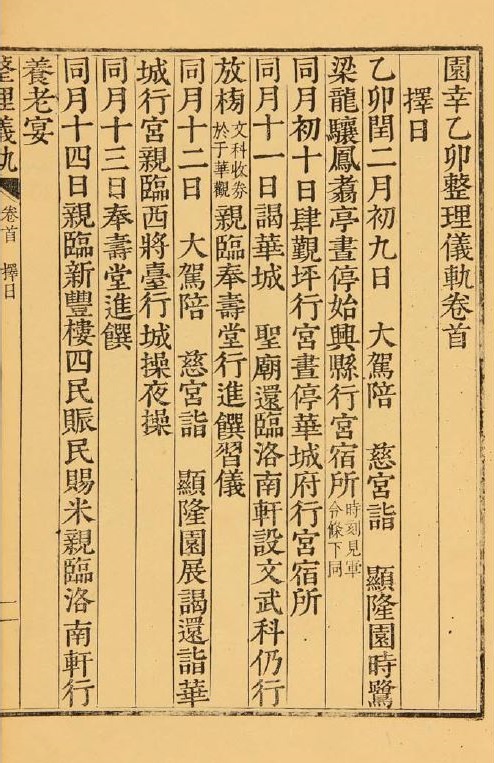 園幸乙卯整理儀軌卷首
擇日
乙卯閏二月初九日 大駕陪 慈宮詣 顯隆園時鷺
梁龍驤鳳翥亭晝停始興縣行宮宿所時刻見軍令條下同
同月初十日肆覲坪行宮晝停華城府行宮宿所
同月十一日謁華城 聖廟還臨洛南軒設文武科仍行
放榜文科收券於于華觀親臨奉壽堂行進饌習儀
同月十二日 大駕陪 慈宮詣 顯隆園展謁還詣華
城行宮親臨西將臺行城操夜操
同月十三日奉壽堂進饌
同月十四日親臨新豐樓四民賑民賜米親臨洛南軒行
養老宴
整理儀軌
卷首 擇日
一